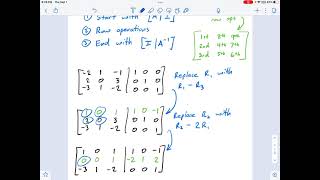 ① Start with [A | I]
② Row operations
③ End with [I | A⁻¹]
row ops
1st 8th 9th
2nd 4th 7th
3rd 5th 6th
-2 1 -1 | 1 0 0
2 0 3 | 0 1 0
-3 1 -2 | 0 0 1
Replace R₁ with
R₁ - R₃
1 0 1 | 1 0 -1
2 0 3 | 0 1 0
-3 1 -2 | 0 0 1
Replace R₂ with
R₂ - 2R₁
1 0 1 | 1 0 -1
0 0 1 | -2 1 2
-3 1 -2 | 0 0 1